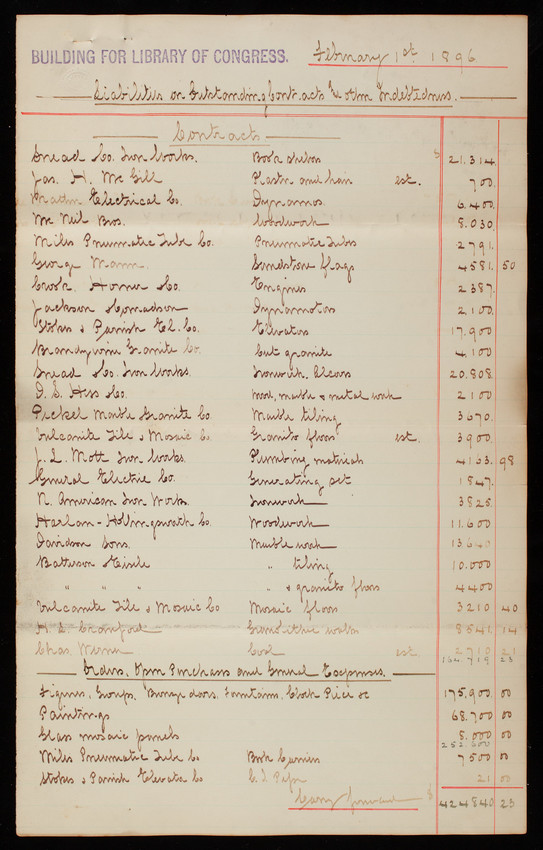 BUILDING FOR LIBRARY OF CONGRESS. February 1st 1896
Liabilities on Outstanding Contracts & other Indebtedness.
Contracts
Snead & Co. Iron Works. Book shelves $ 21.314
Jas. H. McGill Plaster and hair est. 700
Electrical Co. Dynamos 6.400
McNeil Bros. Woodwork 8.030
Miles Pneumatic Tube Co. Pneumatic Tubes 2791
George Mann. Sandstone flags 4581. 50
Crook. Horner & Co. Engines 2387.
Jackson & Dynamotors 2100
Stokes & Parrish El. Co. Elevators 17.900
Brandywine Granite Co. Cut granite 4.100
Snead & Co. Iron Works. Ironwork. 20.808
D. S. Hess & Co. Wood, marble & metal work 2100
Pickel Marble & Granite Co Marble tiling 3670.
Vulcanite Tile & Mosaic Co. Granito floors est. 3900.
J. L. Mott Iron Works. Plumbing materials 4163. 98
General Electric Co. Generating set 1847.
N. American Iron Works. Ironwork 3825
Harlan-Hollingsworth Co. Woodwork 11.600
Davidson Sons. Marble work 13.640
Batterson & Eisele " tiling 10.000
" " " " & granito floors 4400
Vulcanite Tile & Mosaic Co Mosaic floors 3210 40
H. L. Cranford Granolithic walks 8541 14
Chas. Werner Coal est 2710 21
164.719 23
Orders, Open Purchases and General Expenses.
Figures, Groups, Bronze doors, Fountains, Clock Piece &c 175,900 00
Paintings 68.700 00
Glass mosaic panels 8.000 00
252.600
Miles Pneumatic Tube Co Book Carriers 7500 00
Stokes & Parrish Elevator Co C. I. Pipe 21 00
Carry forward $ 424840 23